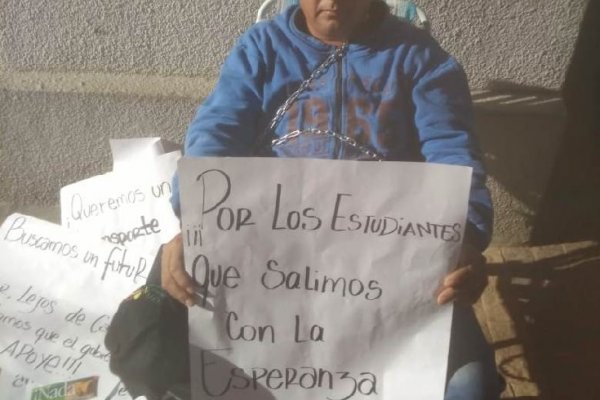 ¡¡¡ Por Los Estudiantes
Que Salimos
Con La
Esperanza
¡Queremos un
Buscamos un futur
Lejos de
que el
APOYE!!!
Nada